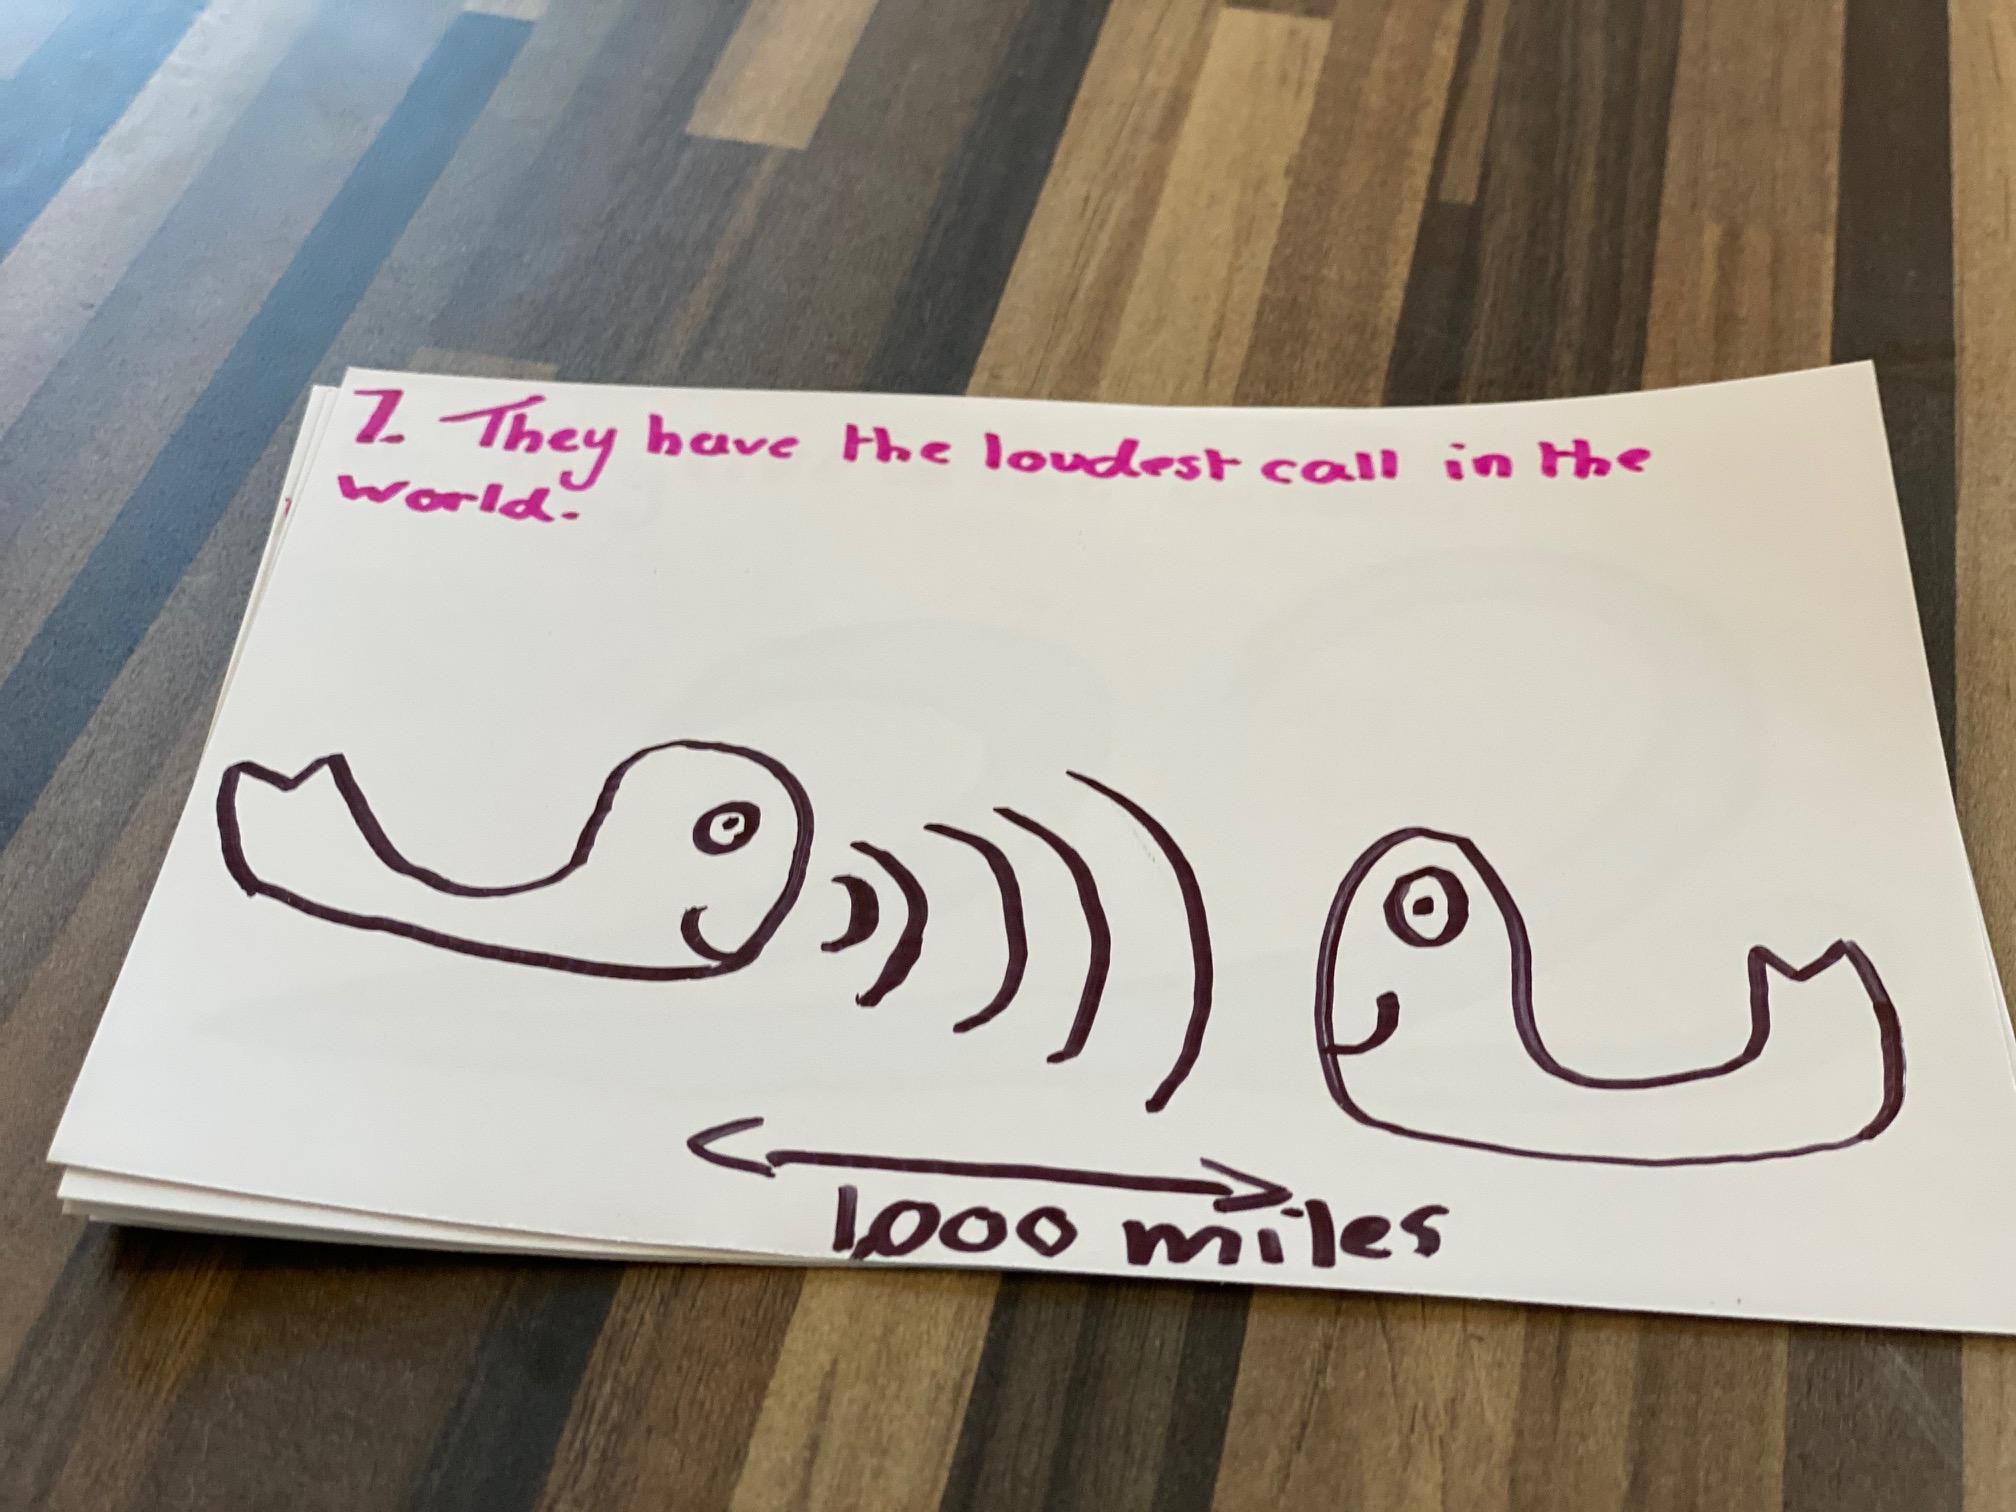 7. They have the loudest call in the
world.
1,000 miles